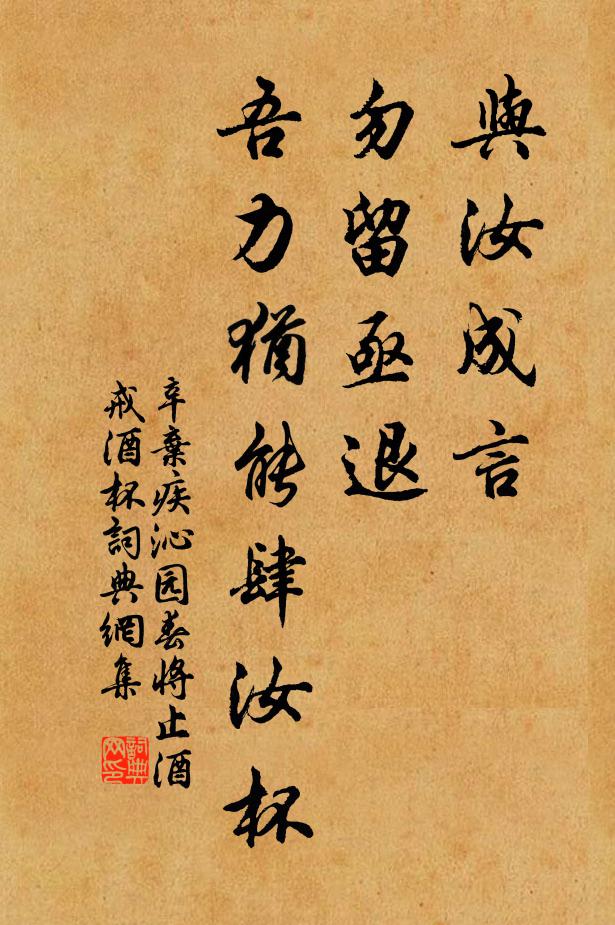 與汝成言
勿留亟退
吾力猶能肆汝杯
辛棄疾沁园春將止酒
戒酒杯詞典網集
詞典
网印